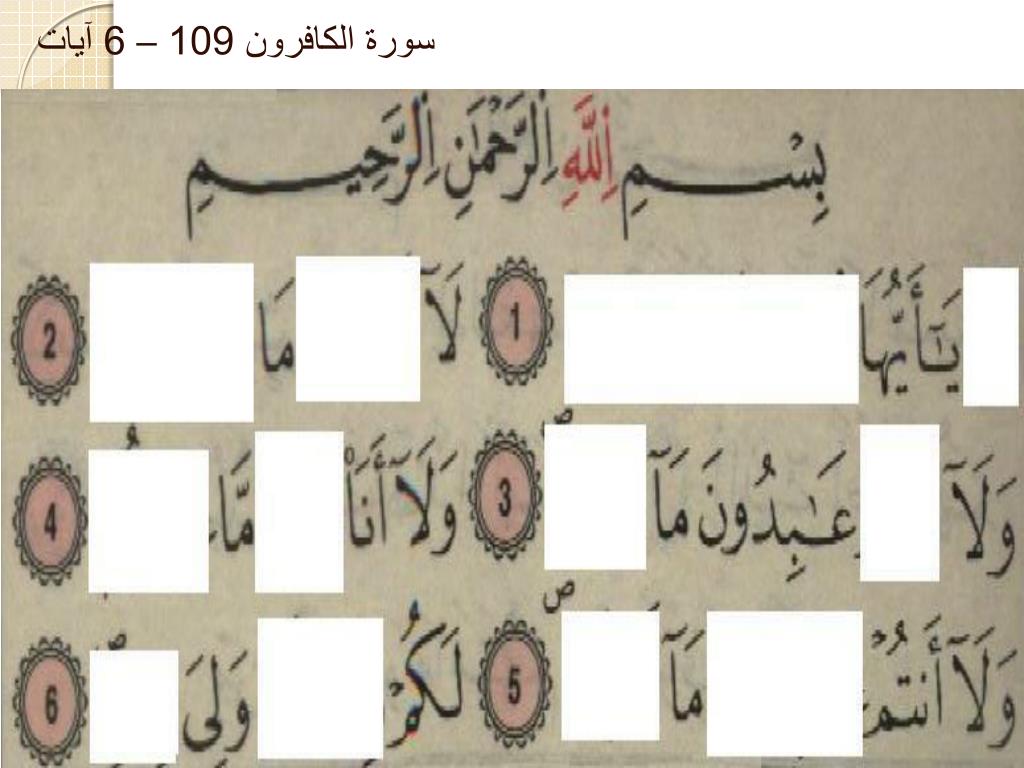 سورة الكافرون 109 – 6 آيات
بِسْمِ اِللَّهِ اِلرَّحْمَٰنِ اِلرَّحِيمِ
يَٰٓأَيُّهَا 1 لَآ مَا 2
وَلَآ عَٰبِدُونَ مَآ 3 وَلَآ أَنَا مَّا 4
وَلَآ أَنتُمْ مَآ 5 لَكُمْ وَلِيَ 6